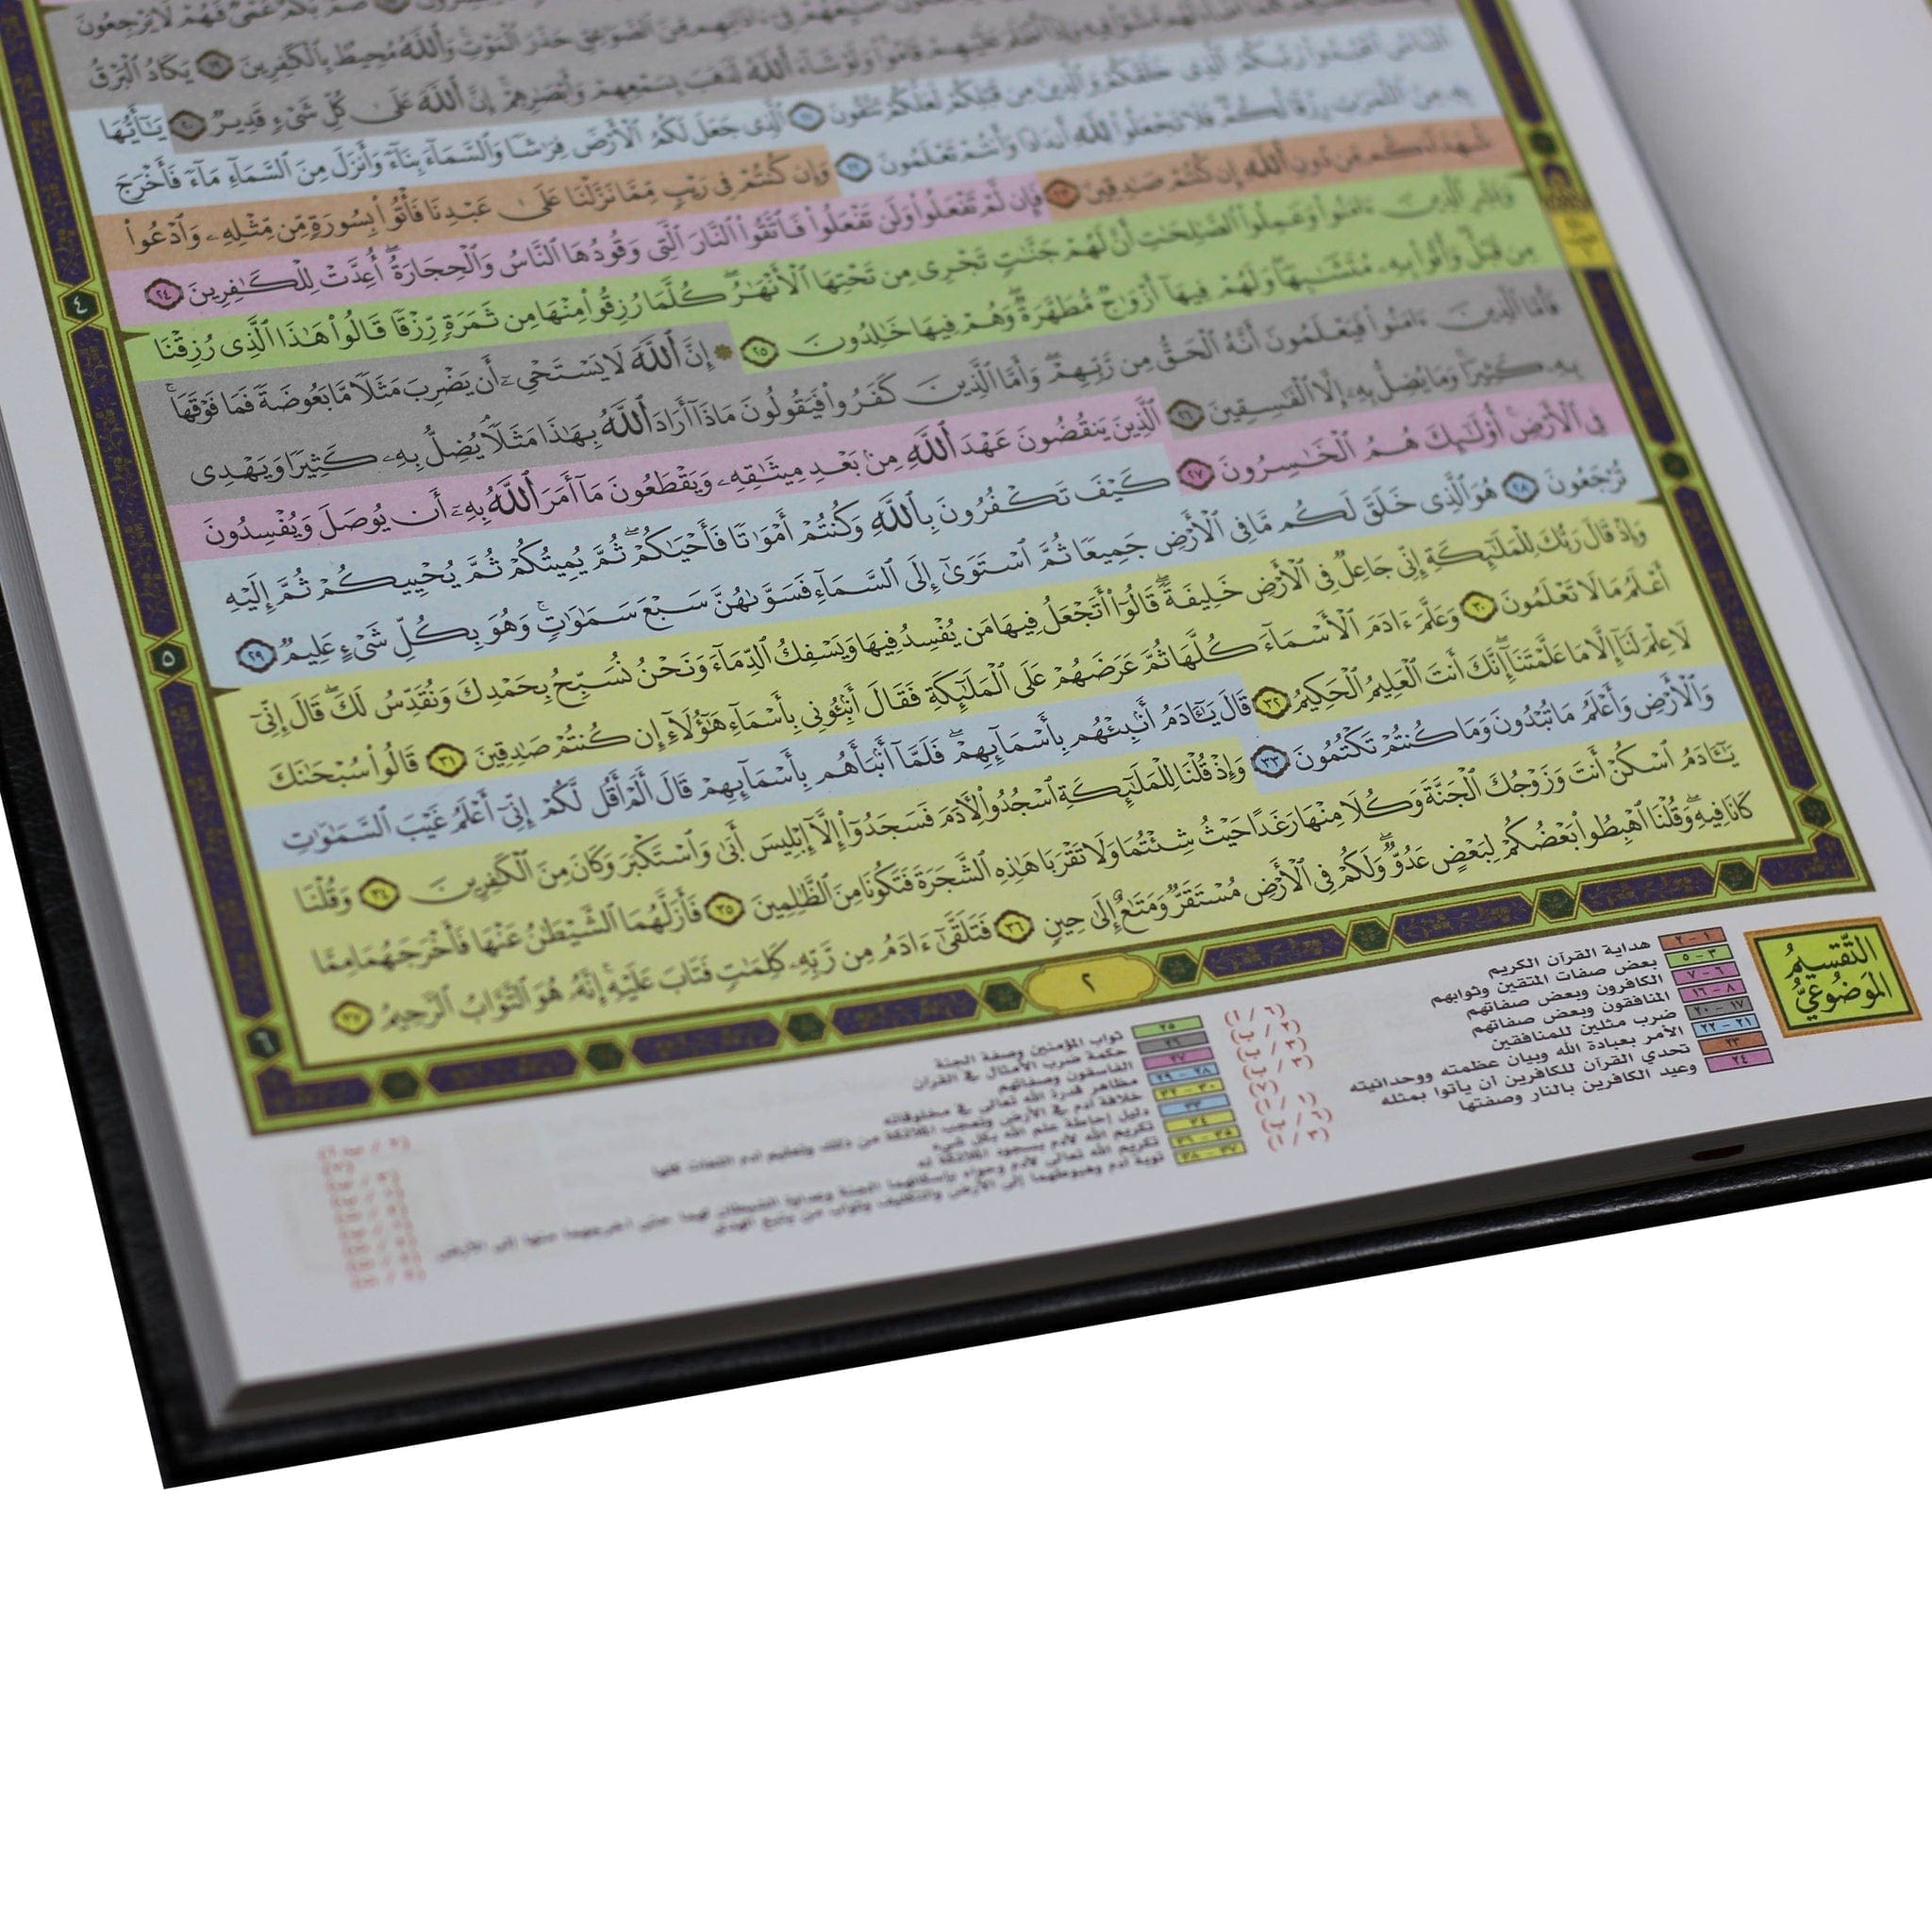 صُمٌّۢ بُكْمٌ عُمْىٌ فَهُمْ لَا يَرْجِعُونَ
حَذَرَ ٱلْمَوْتِ وَٱللَّهُ مُحِيطٌۢ بِٱلْكَـٰفِرِينَ ١٩ يَكَادُ ٱلْبَرْقُ
قَامُوا۟ وَلَوْ شَآءَ ٱللَّهُ لَذَهَبَ بِسَمْعِهِمْ وَأَبْصَـٰرِهِمْ إِنَّ ٱللَّهَ عَلَىٰ كُلِّ شَىْءٍ قَدِيرٌ ٢٠ يَـٰٓأَيُّهَا
ٱلنَّاسُ ٱعْبُدُوا۟ رَبَّكُمُ ٱلَّذِى خَلَقَكُمْ وَٱلَّذِينَ مِن قَبْلِكُمْ لَعَلَّكُمْ تَتَّقُونَ ٢١ ٱلَّذِى جَعَلَ لَكُمُ ٱلْأَرْضَ فِرَٰشًا وَٱلسَّمَآءَ بِنَآءً وَأَنزَلَ مِنَ ٱلسَّمَآءِ مَآءً فَأَخْرَجَ
بِهِۦ مِنَ ٱلثَّمَرَٰتِ رِزْقًا لَّكُمْ فَلَا تَجْعَلُوا۟ لِلَّهِ أَندَادًا وَأَنتُمْ تَعْلَمُونَ ٢٢ وَإِن كُنتُمْ فِى رَيْبٍ مِّمَّا نَزَّلْنَا عَلَىٰ عَبْدِنَا فَأْتُوا۟ بِسُورَةٍ مِّن مِّثْلِهِۦ وَٱدْعُوا۟
شُهَدَآءَكُم مِّن دُونِ ٱللَّهِ إِن كُنتُمْ صَـٰدِقِينَ ٢٣ فَإِن لَّمْ تَفْعَلُوا۟ وَلَن تَفْعَلُوا۟ فَٱتَّقُوا۟ ٱلنَّارَ ٱلَّتِى وَقُودُهَا ٱلنَّاسُ وَٱلْحِجَارَةُ أُعِدَّتْ لِلْكَـٰفِرِينَ ٢٤
وَبَشِّرِ ٱلَّذِينَ ءَامَنُوا۟ وَعَمِلُوا۟ ٱلصَّـٰلِحَـٰتِ أَنَّ لَهُمْ جَنَّـٰتٍ تَجْرِى مِن تَحْتِهَا ٱلْأَنْهَـٰرُ كُلَّمَا رُزِقُوا۟ مِنْهَا مِن ثَمَرَةٍ رِّزْقًا قَالُوا۟ هَـٰذَا ٱلَّذِى رُزِقْنَا
مِن قَبْلُ وَأُتُوا۟ بِهِۦ مُتَشَـٰبِهًا وَلَهُمْ فِيهَآ أَزْوَٰجٌ مُّطَهَّرَةٌ وَهُمْ فِيهَا خَـٰلِدُونَ ٢٥ إِنَّ ٱللَّهَ لَا يَسْتَحْىِۦٓ أَن يَضْرِبَ مَثَلًا مَّا بَعُوضَةً فَمَا فَوْقَهَا
فَأَمَّا ٱلَّذِينَ ءَامَنُوا۟ فَيَعْلَمُونَ أَنَّهُ ٱلْحَقُّ مِن رَّبِّهِمْ وَأَمَّا ٱلَّذِينَ كَفَرُوا۟ فَيَقُولُونَ مَاذَآ أَرَادَ ٱللَّهُ بِهَـٰذَا مَثَلًا يُضِلُّ بِهِۦ كَثِيرًا وَيَهْدِى
بِهِۦ كَثِيرًا وَمَا يُضِلُّ بِهِۦٓ إِلَّا ٱلْفَـٰسِقِينَ ٢٦ ٱلَّذِينَ يَنقُضُونَ عَهْدَ ٱللَّهِ مِنۢ بَعْدِ مِيثَـٰقِهِۦ وَيَقْطَعُونَ مَآ أَمَرَ ٱللَّهُ بِهِۦٓ أَن يُوصَلَ وَيُفْسِدُونَ
فِى ٱلْأَرْضِ أُو۟لَـٰٓئِكَ هُمُ ٱلْخَـٰسِرُونَ ٢٧ كَيْفَ تَكْفُرُونَ بِٱللَّهِ وَكُنتُمْ أَمْوَٰتًا فَأَحْيَـٰكُمْ ثُمَّ يُمِيتُكُمْ ثُمَّ يُحْيِيكُمْ ثُمَّ إِلَيْهِ
تُرْجَعُونَ ٢٨ هُوَ ٱلَّذِى خَلَقَ لَكُم مَّا فِى ٱلْأَرْضِ جَمِيعًا ثُمَّ ٱسْتَوَىٰٓ إِلَى ٱلسَّمَآءِ فَسَوَّىٰهُنَّ سَبْعَ سَمَـٰوَٰتٍ وَهُوَ بِكُلِّ شَىْءٍ عَلِيمٌ ٢٩
وَإِذْ قَالَ رَبُّكَ لِلْمَلَـٰٓئِكَةِ إِنِّى جَاعِلٌ فِى ٱلْأَرْضِ خَلِيفَةً قَالُوٓا۟ أَتَجْعَلُ فِيهَا مَن يُفْسِدُ فِيهَا وَيَسْفِكُ ٱلدِّمَآءَ وَنَحْنُ نُسَبِّحُ بِحَمْدِكَ وَنُقَدِّسُ لَكَ قَالَ إِنِّىٓ
أَعْلَمُ مَا لَا تَعْلَمُونَ ٣٠ وَعَلَّمَ ءَادَمَ ٱلْأَسْمَآءَ كُلَّهَا ثُمَّ عَرَضَهُمْ عَلَى ٱلْمَلَـٰٓئِكَةِ فَقَالَ أَنۢبِـُٔونِى بِأَسْمَآءِ هَـٰٓؤُلَآءِ إِن كُنتُمْ صَـٰدِقِينَ ٣١ قَالُوا۟ سُبْحَـٰنَكَ
لَا عِلْمَ لَنَآ إِلَّا مَا عَلَّمْتَنَآ إِنَّكَ أَنتَ ٱلْعَلِيمُ ٱلْحَكِيمُ ٣٢ قَالَ يَـٰٓـَٔادَمُ أَنۢبِئْهُم بِأَسْمَآئِهِمْ فَلَمَّآ أَنۢبَأَهُم بِأَسْمَآئِهِمْ قَالَ أَلَمْ أَقُل لَّكُمْ إِنِّىٓ أَعْلَمُ غَيْبَ ٱلسَّمَـٰوَٰتِ
وَٱلْأَرْضِ وَأَعْلَمُ مَا تُبْدُونَ وَمَا كُنتُمْ تَكْتُمُونَ ٣٣ وَإِذْ قُلْنَا لِلْمَلَـٰٓئِكَةِ ٱسْجُدُوا۟ لِـَٔادَمَ فَسَجَدُوٓا۟ إِلَّآ إِبْلِيسَ أَبَىٰ وَٱسْتَكْبَرَ وَكَانَ مِنَ ٱلْكَـٰفِرِينَ ٣٤ وَقُلْنَا
يَـٰٓـَٔادَمُ ٱسْكُنْ أَنتَ وَزَوْجُكَ ٱلْجَنَّةَ وَكُلَا مِنْهَا رَغَدًا حَيْثُ شِئْتُمَا وَلَا تَقْرَبَا هَـٰذِهِ ٱلشَّجَرَةَ فَتَكُونَا مِنَ ٱلظَّـٰلِمِينَ ٣٥ فَأَزَلَّهُمَا ٱلشَّيْطَـٰنُ عَنْهَا فَأَخْرَجَهُمَا مِمَّا
كَانَا فِيهِ وَقُلْنَا ٱهْبِطُوا۟ بَعْضُكُمْ لِبَعْضٍ عَدُوٌّ وَلَكُمْ فِى ٱلْأَرْضِ مُسْتَقَرٌّ وَمَتَـٰعٌ إِلَىٰ حِينٍ ٣٦ فَتَلَقَّىٰٓ ءَادَمُ مِن رَّبِّهِۦ كَلِمَـٰتٍ فَتَابَ عَلَيْهِ إِنَّهُۥ هُوَ ٱلتَّوَّابُ ٱلرَّحِيمُ ٣٧
٤
٥
٦
٢
التَّقْسِيمُ
المَوْضُوعِيُّ
١ - ٢ هداية القرآن الكريم
٣ - ٥ بعض صفات المتقين وثوابهم
٦ - ٧ الكافرون وبعض صفاتهم
٨ - ١٦ المنافقون وبعض صفاتهم
١٧ - ٢٠ ضرب مثلين للمنافقين
٢١ - ٢٢ الأمر بعبادة الله وبيان عظمته ووحدانيته
٢٣ تحدي القرآن للكافرين أن يأتوا بمثله
٢٤ وعيد الكافرين بالنار وصفتها
٢٥ ثواب المؤمنين وصفة الجنة
٢٦ حكمة ضرب الأمثال في القرآن
٢٧ الفاسقون وصفاتهم
٢٨ - ٢٩ مظاهر قدرة الله تعالى في مخلوقاته
٣٠ - ٣٢ خلافة آدم في الأرض وتعجب الملائكة من ذلك وتعليم آدم اللغات كلها
٣٣ دليل إحاطة علم الله بكل شيء
٣٤ تكريم الله لآدم بسجود الملائكة له
٣٥ - ٣٦ تكريم الله تعالى لآدم وحواء بإسكانهما الجنة وعداوة الشيطان لهما حتى أخرجهما منها إلى الأرض
٣٧ - ٣٨ توبة آدم وهبوطهما إلى الأرض والتكليف وثواب من يتبع الهدى